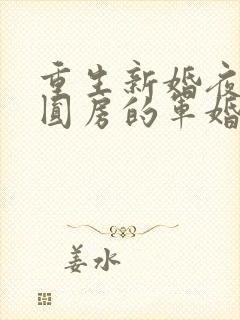 重生新婚夜
圆房的军婚
姜水